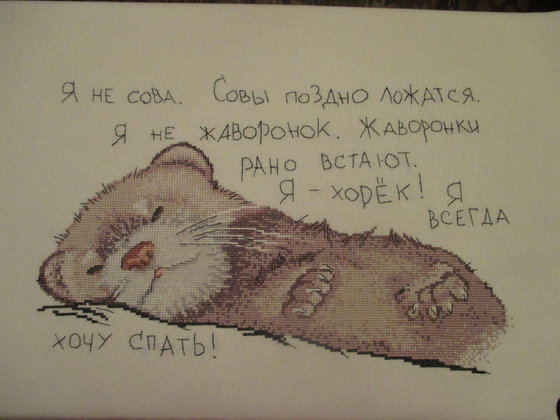 Я НЕ СОВА. СОВЫ ПОЗДНО ЛОЖАТСЯ.
Я НЕ ЖАВОРОНОК. ЖАВОРОНКИ
РАНО ВСТАЮТ.
Я - ХОРЁК! Я
ВСЕГДА
ХОЧУ СПАТЬ!